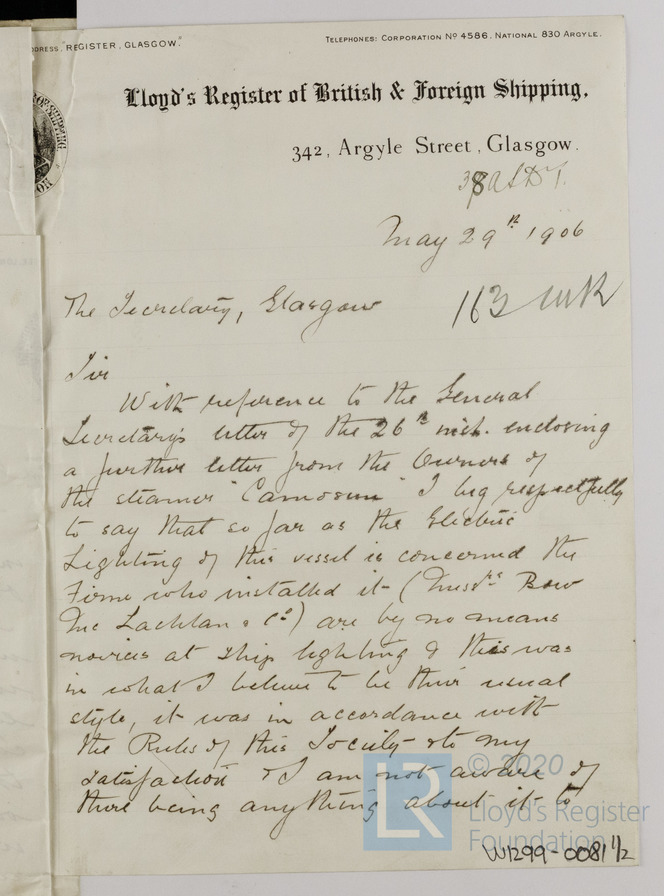 DDRESS, "REGISTER, GLASGOW."
TELEPHONES: CORPORATION Nº 4586, NATIONAL 830 ARGYLE.
Lloyd's Register of British & Foreign Shipping,
342, Argyle Street, Glasgow.
May 29th 1906
The Secretary, Glasgow
163
Sir
With reference to the General
Secretary's letter of the 26th inst. enclosing
a further letter from the Owners of
the steamer "Camosun" I beg respectfully
to say that so far as the Electric
Lighting of this vessel is concerned the
Firm who installed it (Messrs Bow
Mc Lachlan & Co) are by no means
novices at ship lighting & this was
in what I believe to be their usual
style, it was in accordance with
the Rules of this Society & to my
satisfaction & I am not aware of
there being anything about it to
© 2020
LR
Lloyd's Register
Foundation
W1299-0081 1/2